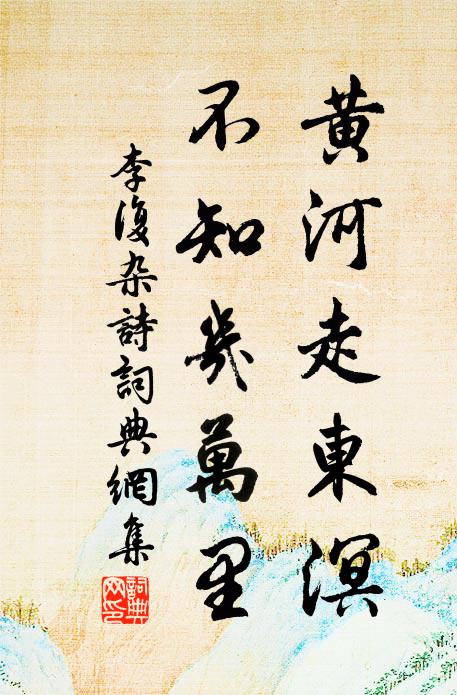 黄河走東溟
不知幾萬里
李復杂詩詞典網集
詞典网印